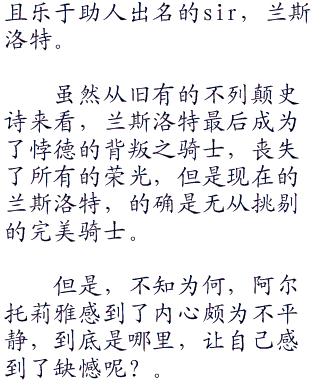 且乐于助人出名的sir，兰斯
洛特。
虽然从旧有的不列颠史
诗来看，兰斯洛特最后成为
了悖德的背叛之骑士，丧失
了所有的荣光，但是现在的
兰斯洛特，的确是无从挑剔
的完美骑士。
但是，不知为何，阿尔
托莉雅感到了内心颇为不平
静，到底是哪里，让自己感
到了缺憾呢？。